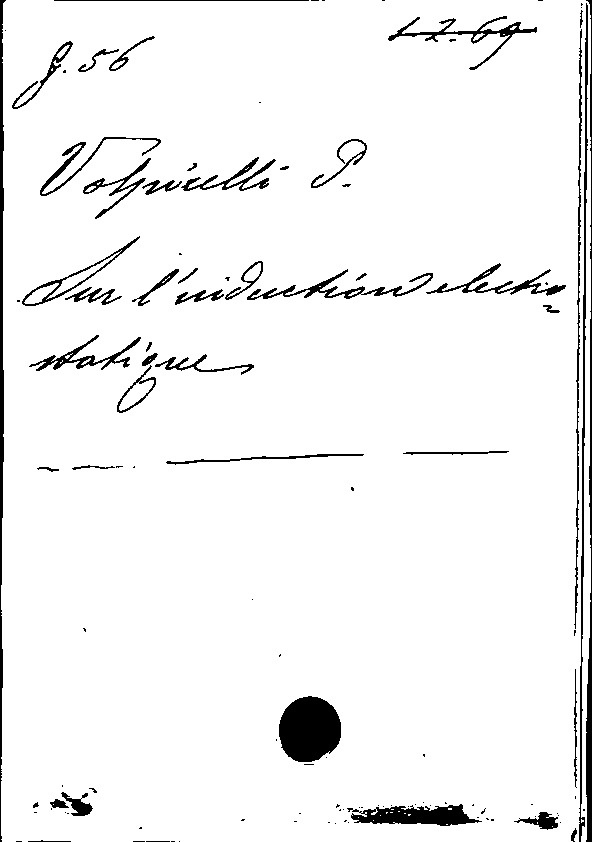 g. 56
1. 2. 69
Volpicelli P.
Sur l'induction electro=
statique